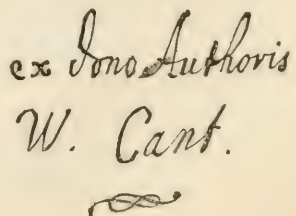 ex dono Authoris
W. Cant.